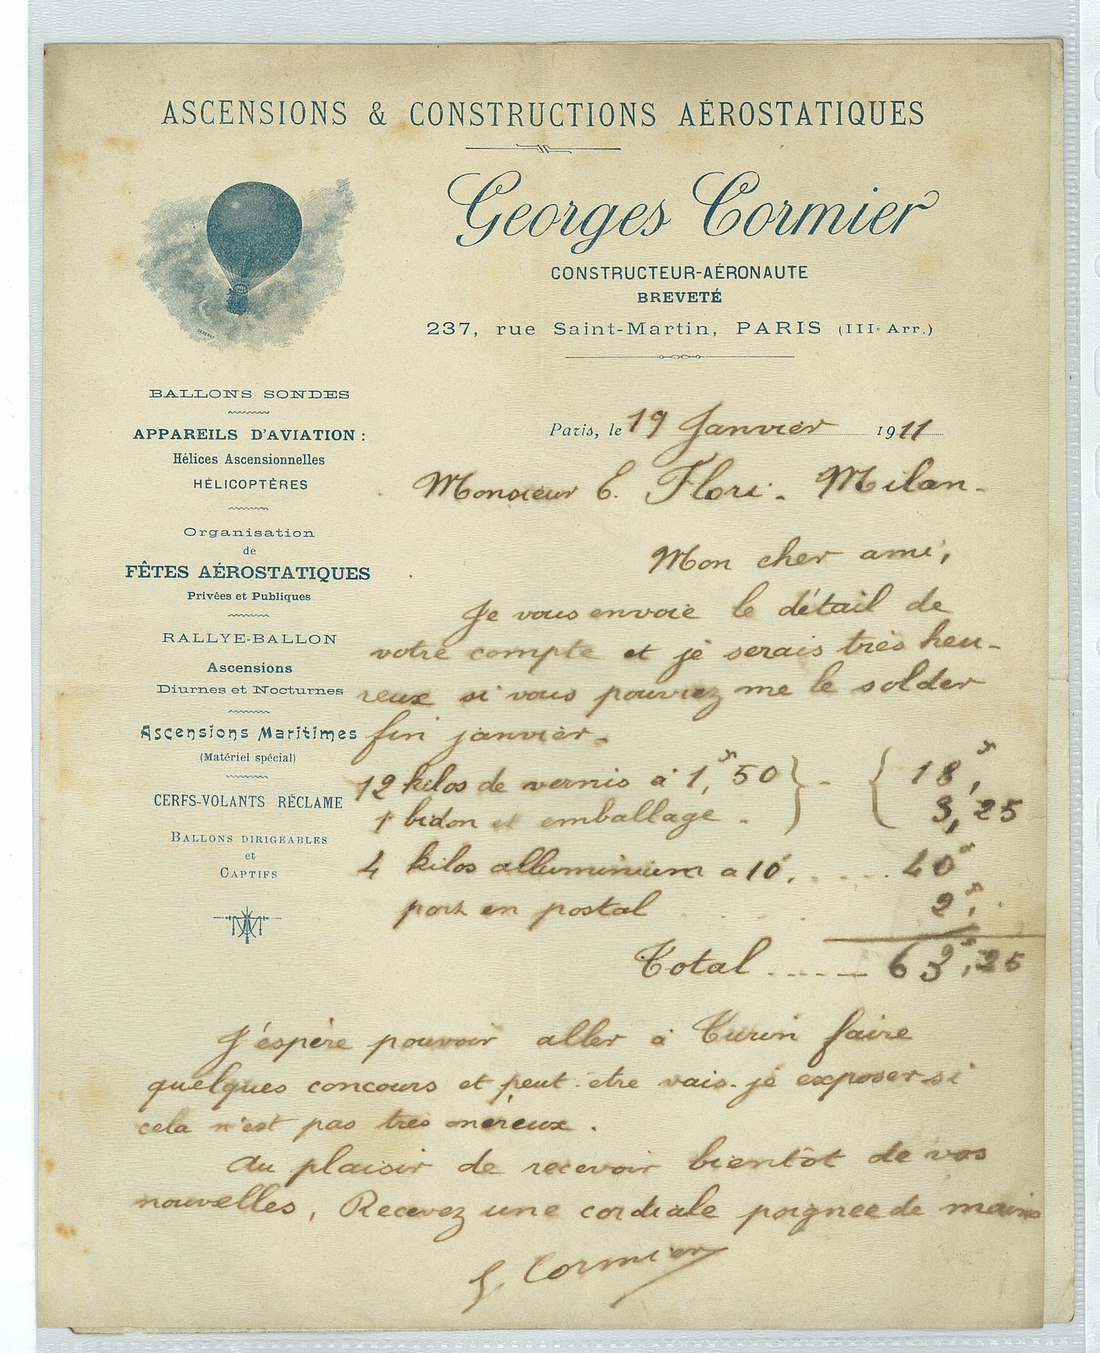 ASCENSIONS & CONSTRUCTIONS AÉROSTATIQUES
Georges Cormier
CONSTRUCTEUR-AÉRONAUTE
BREVETÉ
237, rue Saint-Martin, PARIS (IIIe Arr.)
BALLONS SONDES
APPAREILS D'AVIATION :
Hélices Ascensionnelles
HÉLICOPTÈRES
Organisation
de
FÊTES AÉROSTATIQUES
Privées et Publiques
RALLYE-BALLON
Ascensions
Diurnes et Nocturnes
Ascensions Maritimes
(Matériel spécial)
CERFS-VOLANTS RÉCLAME
BALLONS DIRIGEABLES
et
CAPTIFS
Paris, le 19 Janvier 1911
Monsieur E. Flori - Milan -
Mon cher ami,
Je vous envoie le détail de
votre compte et je serais très heu-
reux si vous pouviez me le solder
fin janvier -
12 kilos de vernis à 1,f 50 } - { 18f,
1 bidon et emballage . 3,25
4 kilos alluminium a 10f. ..... 40f
port en postal 2f,
Total ..... 63f,25
J'éspère pouvoir aller à Turin faire
quelques concours et peut-etre vais-je exposer si
cela n'est pas très onéreux .
Au plaisir de recevoir bientôt de vos
nouvelles, Recevez une cordiale poignee de mains
G. Cormier